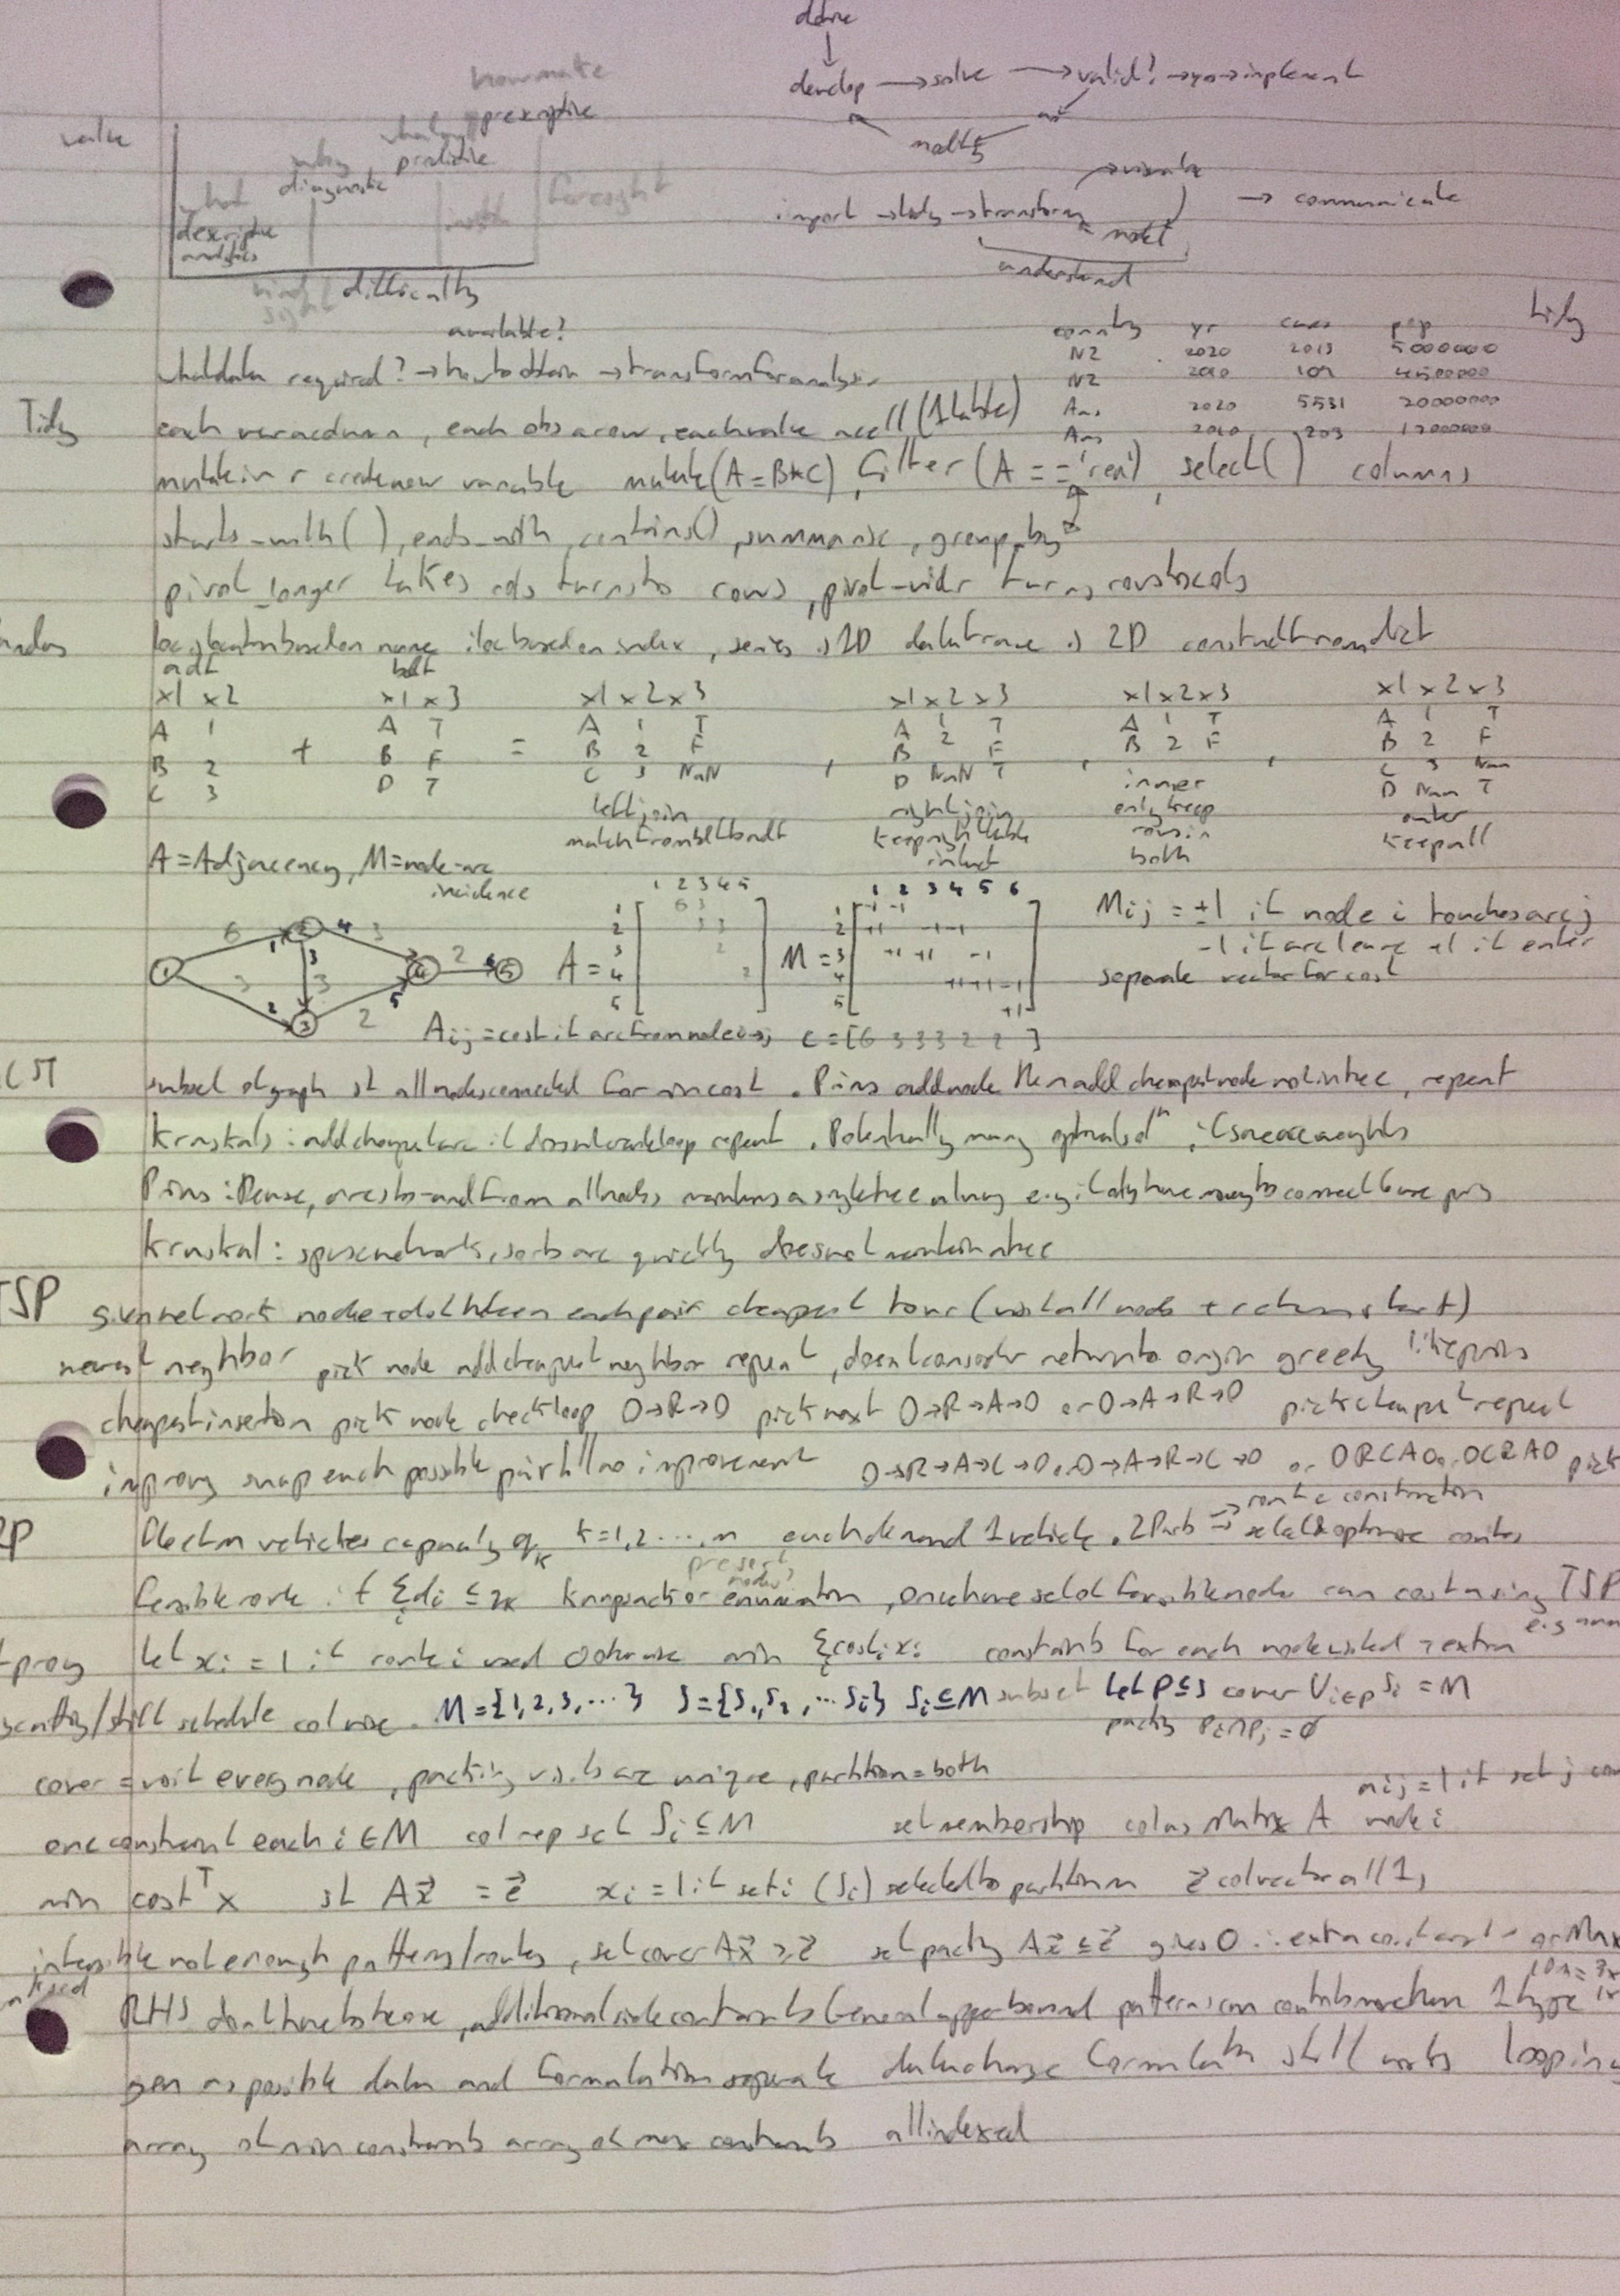 define
develop → solve → valid? → yes → implement
no
modify
how make
prescriptive
what
predictive
why
diagnostic
what
descriptive
analytics
value
hind
sight
insight
foresight
difficulty
import → tidy → transform → visualise
model
understand
→ communicate
available?
what data required? → how to obtain → transform for analysis
tidy
country yr cases pop
NZ 2020 2013 5000000
NZ 2010 109 4500000
Aus 2020 5531 20000000
Aus 2010 203 17000000
Tidy each var a column, each obs a row, each value a cell (1 table)
mutate in r create new variable mutate(A=B*C), filter(A=='rea'), select() columns
starts_with(), ends_with, contains(), summarise, group_by
pivot_longer takes cols turns to rows, pivot_wider turns rows to cols
loc location based on name iloc based on index, series is 1D dataframe is 2D construct from dict
adf bdf
x1 x2 x1 x3 x1 x2 x3 x1 x2 x3 x1 x2 x3 x1 x2 x3
A 1 A T A 1 T A 1 T A 1 T A 1 T
B 2 + B F = B 2 F , B 2 F , B 2 F , B 2 F
C 3 D T C 3 NaN D NaN T inner C 3 NaN
D NaN T
left join right join only keep outer
match from bdf to adf keep right table rows in keep all
intact both
A = Adjacency, M = node-arc
incidence
1 2 3 4 5 1 2 3 4 5 6
A = M =
M_ij = ±1 if node i touches arc j
-1 if arc leave +1 if enter
separate vector for cost
A_ij = cost if arc from node i to j c = [6 3 3 3 2 2]
subset of graph st all nodes connected for min cost. Prims add node then add cheapest node not in tree, repeat
Kruskals: add cheapest arc if doesnt create loop repeat. Potentially many optimal sol^n if some arc weights
Prims: Dense, arcs to and from all nodes maintains a single tree always
Kruskal: sparse network, sorts arc quickly does not maintain a tree
TSP given network node + dist between each pair cheapest tour (visit all nodes + return start)
nearest neighbor pick node add cheapest neighbor repeat, doesnt consider return to origin greedy like prims
cheapest insertion pick node check loop O→R→O pick next O→R→A→O or O→A→R→O pick cheapest repeat
improve swap each possible pair till no improvement O→R→A→C→O or O→A→R→C→O or ORCAO or OCRAO pick
vehicles capacity q_k k=1,2...m each demand 1 vehicle. 2 Parts → route construction
→ select & optimise routes
feasible route if Σ_i d_i ≤ q_k knapsack or enumeration, once have set of feasible nodes can cost using TSP
present
nodes?
let x_i = 1 if route i used 0 otherwise min Σ cost_i x_i constraints for each node visited + extra
schedule col wise. M={1,2,3,...} S={S_1,S_2,...S_i} S_i⊆M subset let P⊆S cover U_{i∈P} S_i = M
packing P_i∩P_j = ∅
cover = visit every node, packing visits are unique, partition = both
one constraint each i∈M col rep set S_i⊆M set membership col as Matrix A a_ij = 1 if set j
node i
min cost^T x st Ax⃗ = e⃗ x_i = 1 if set i (S_i) selected to partition m e⃗ col vector all 1s
infeasible not enough patterns/routes, set cover Ax⃗ ≥ e⃗ set packing Ax⃗ ≤ e⃗ gives 0 ∴ extra constraint or Max
RHS dont have to be one, additional side constraints General upper bound patterns can contribute more than 1 type
gen as possible data and formulation separate data change formulation still works looping
array of min constraints array of max constraints all indexed